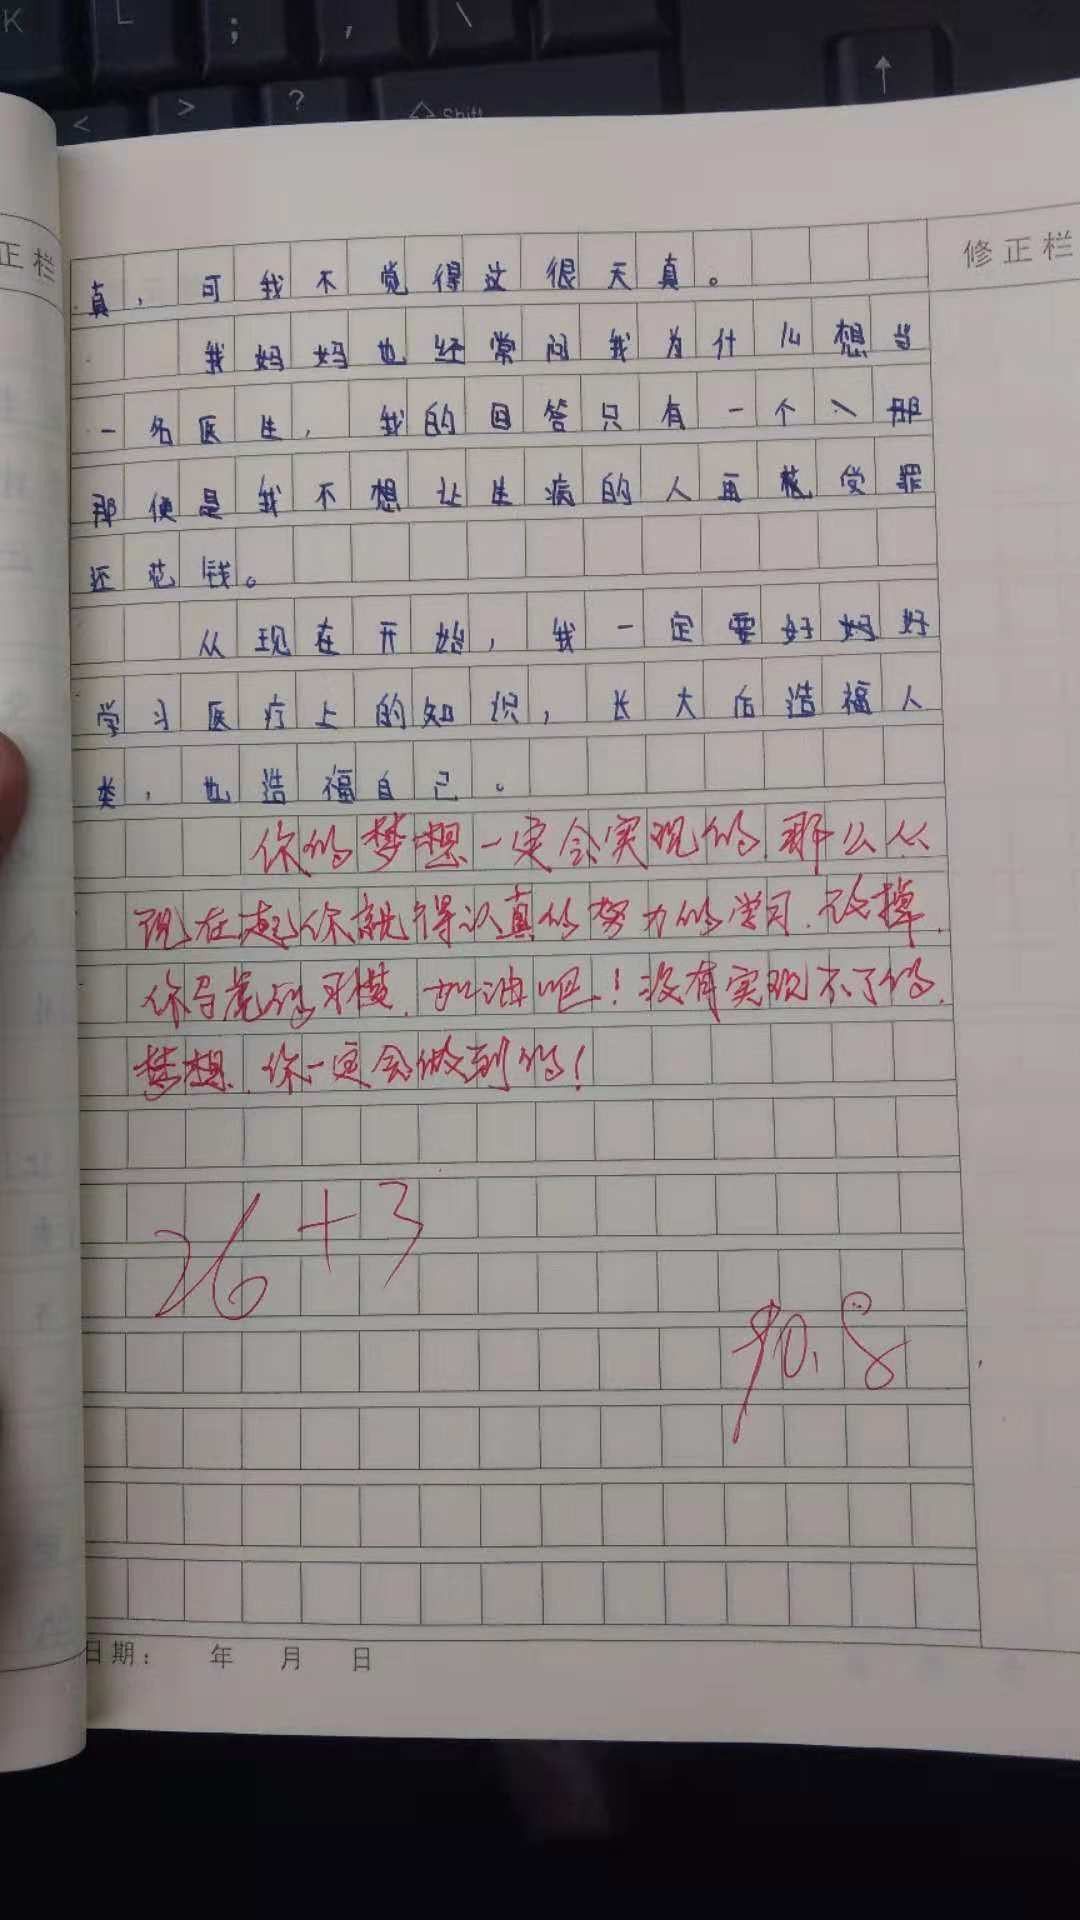 K L ; , \
< > ? Shift ↑
正栏
修正栏
真，可我不觉得这很天真。
我妈妈也经常问我为什么想当
一名医生，我的回答只有一个、那
那便是我不想让生病的人再被受罪
还花钱。
从现在开始，我一定要好妈好
学习医疗上的知识，长大后造福人
类，也造福自己。
你的梦想一定会实现的，那么从
现在起你就得认真的努力的学习，改掉
你马虎的习惯，加油吧！没有实现不了的
梦想，你一定会做到的！
26+3
90.8
日期： 年 月 日